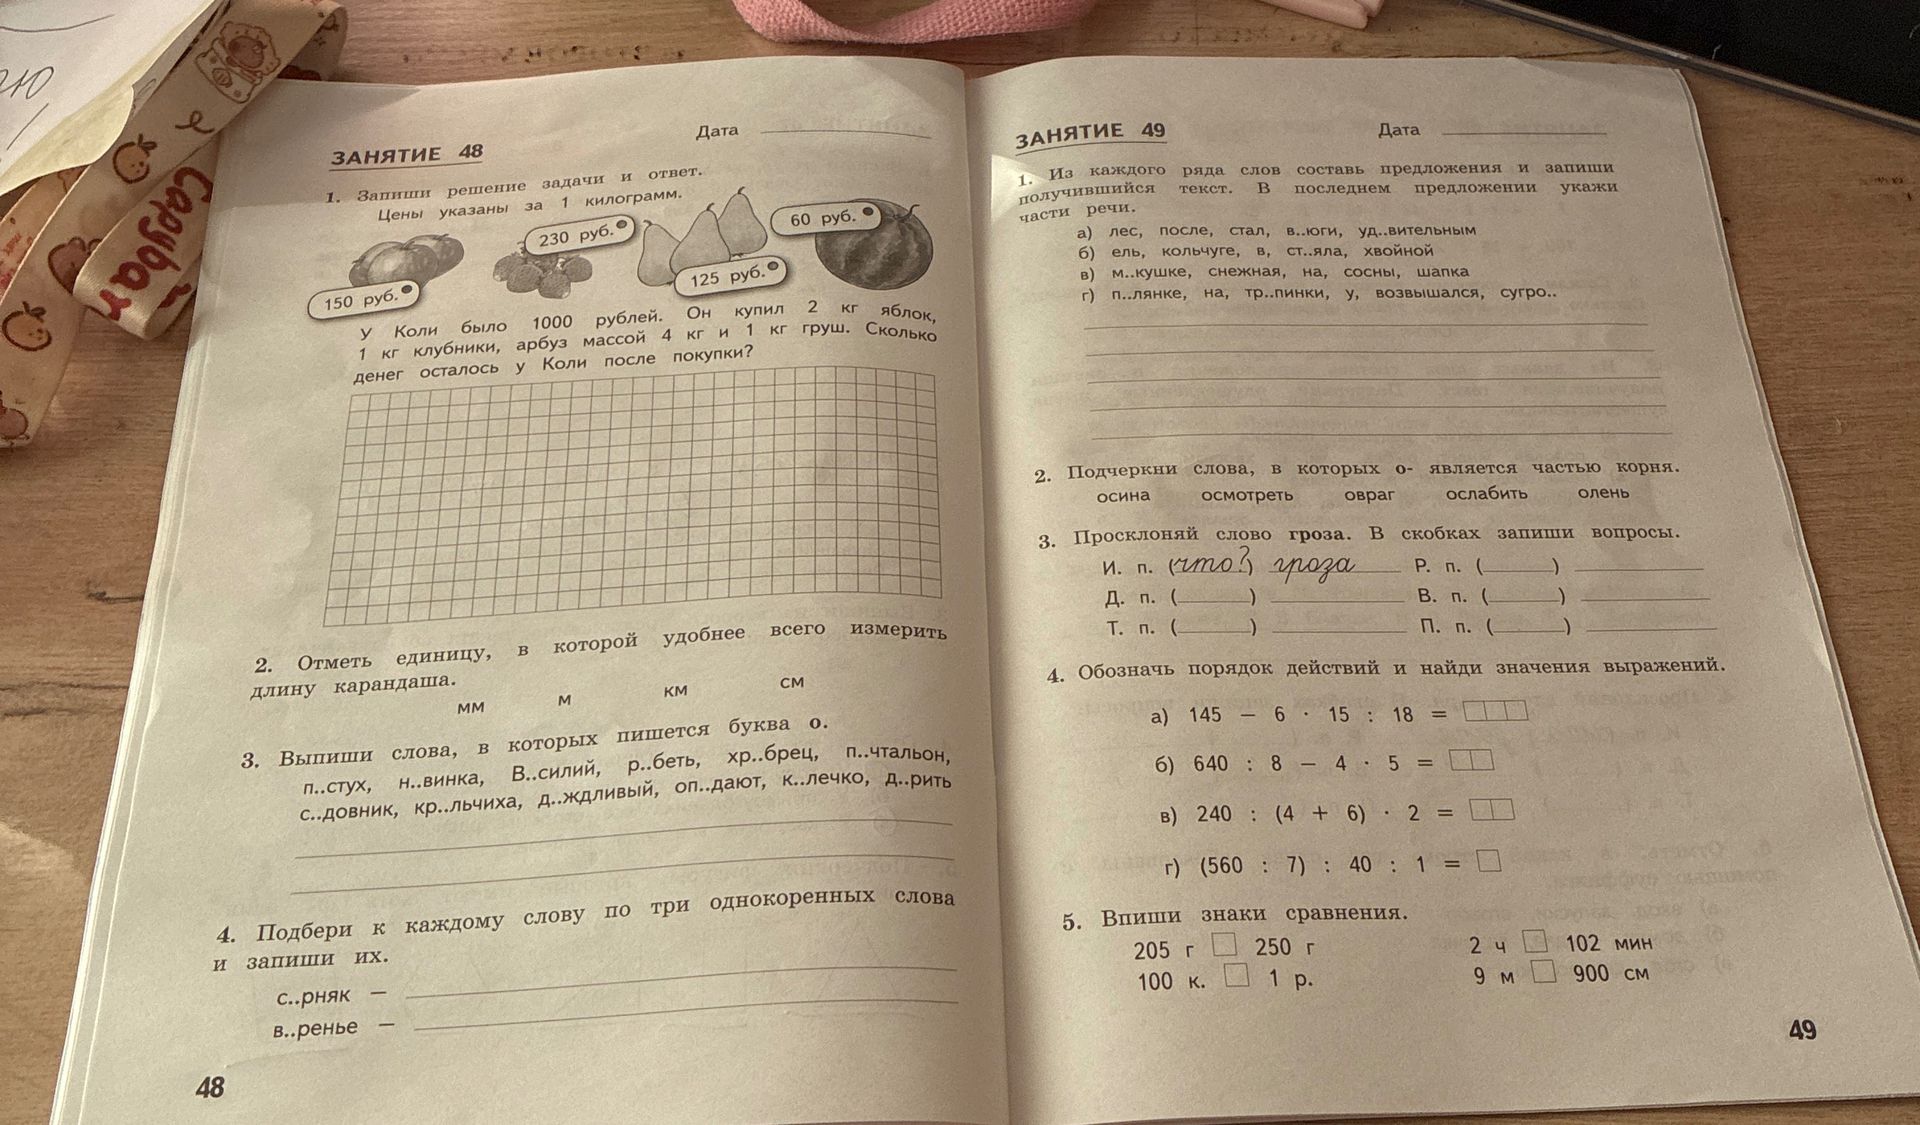 ню
Capybar
Дата
ЗАНЯТИЕ 48
1. Запиши решение задачи и ответ.
Цены указаны за 1 килограмм.
150 руб.
230 руб.
125 руб.
60 руб.
У Коли было 1000 рублей. Он купил 2 кг яблок,
1 кг клубники, арбуз массой 4 кг и 1 кг груш. Сколько
денег осталось у Коли после покупки?
2. Отметь единицу, в которой удобнее всего измерить
длину карандаша.
мм м км см
3. Выпиши слова, в которых пишется буква о.
п..стух, н..винка, В..силий, р..беть, хр..брец, п..чтальон,
с..довник, кр..льчиха, д..ждливый, оп..дают, к..лечко, д..рить
4. Подбери к каждому слову по три однокоренных слова
и запиши их.
с..рняк —
в..ренье —
48
ЗАНЯТИЕ 49
Дата
1. Из каждого ряда слов составь предложения и запиши
получившийся текст. В последнем предложении укажи
части речи.
а) лес, после, стал, в..юги, уд..вительным
б) ель, кольчуге, в, ст..яла, хвойной
в) м..кушке, снежная, на, сосны, шапка
г) п..лянке, на, тр..пинки, у, возвышался, сугро..
2. Подчеркни слова, в которых о- является частью корня.
осина осмотреть овраг ослабить олень
3. Просклоняй слово гроза. В скобках запиши вопросы.
И. п. (что?) гроза Р. п. (______) ______
Д. п. (______) ______ В. п. (______) ______
Т. п. (______) ______ П. п. (______) ______
4. Обозначь порядок действий и найди значения выражений.
а) 145 − 6 · 15 : 18 =
б) 640 : 8 − 4 · 5 =
в) 240 : (4 + 6) · 2 =
г) (560 : 7) : 40 : 1 =
5. Впиши знаки сравнения.
205 г □ 250 г 2 ч □ 102 мин
100 к. □ 1 р. 9 м □ 900 см
49